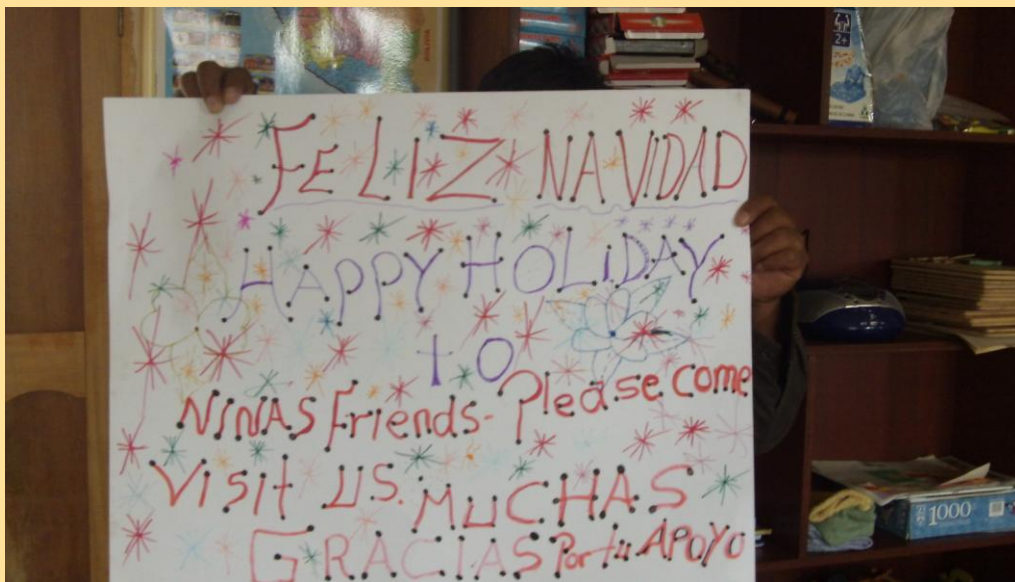 FELIZ NAVIDAD
HAPPY HOLiDAY
to
NiNAS Friends- Please come
Visit us. MuCHAS
GRACIAS Por tu APOYO
BOLIVIA
2+
1000